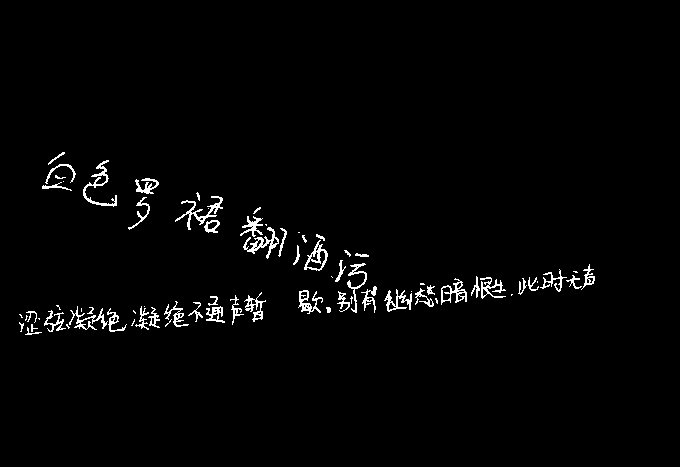 血色罗裙翻酒污
涩弦凝绝,凝绝不通声暂 歇。别有幽愁暗恨生.此时无声